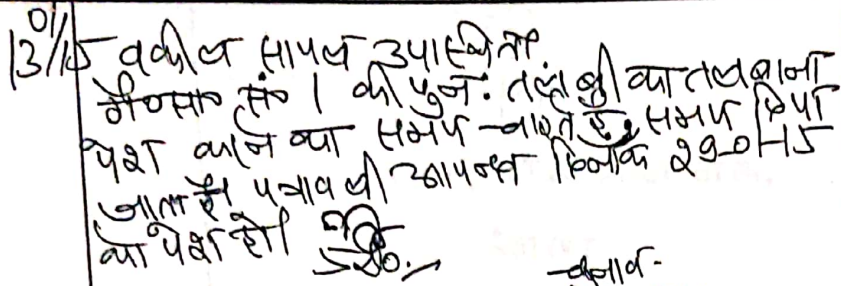 13/01/15 वकील सायल उपस्थित।
गैरसा० सं० 1 की पुनः तलबी का तलबाना
पेश करने का समय चाहते है, समय दिया
जाता है। पत्रावली आयन्दा दिनांक 29-01-15
को पेश हो।